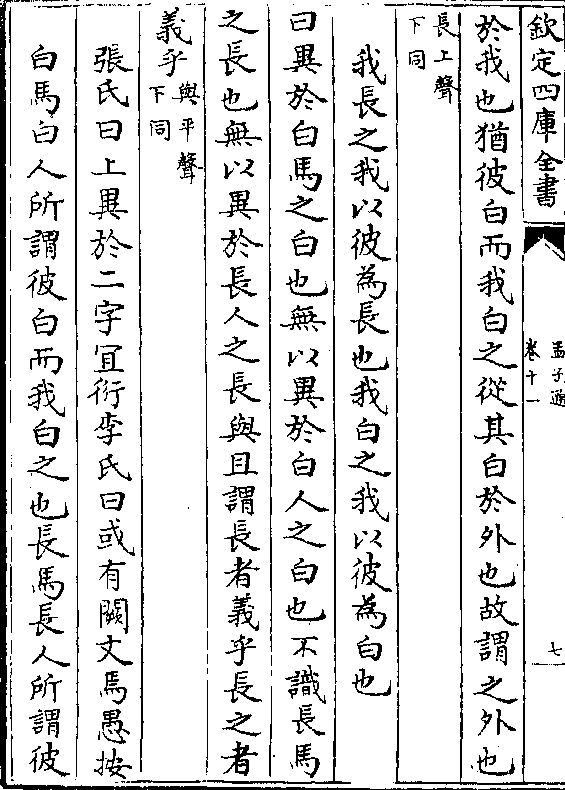 欽定四庫全書
孟子通
卷十一
七
於我也猶彼白而我白之從其白於外也故謂之外也
長上聲
下同
我長之我以彼為長也我白之我以彼為白也
曰異於白馬之白也無以異於白人之白也不識長馬
之長也無以異於長人之長與且謂長者義乎長之者
義乎與平聲
下同
張氏曰上異於二字宜衍李氏曰或有闕文焉愚按
白馬白人所謂彼白而我白之也長馬長人所謂彼